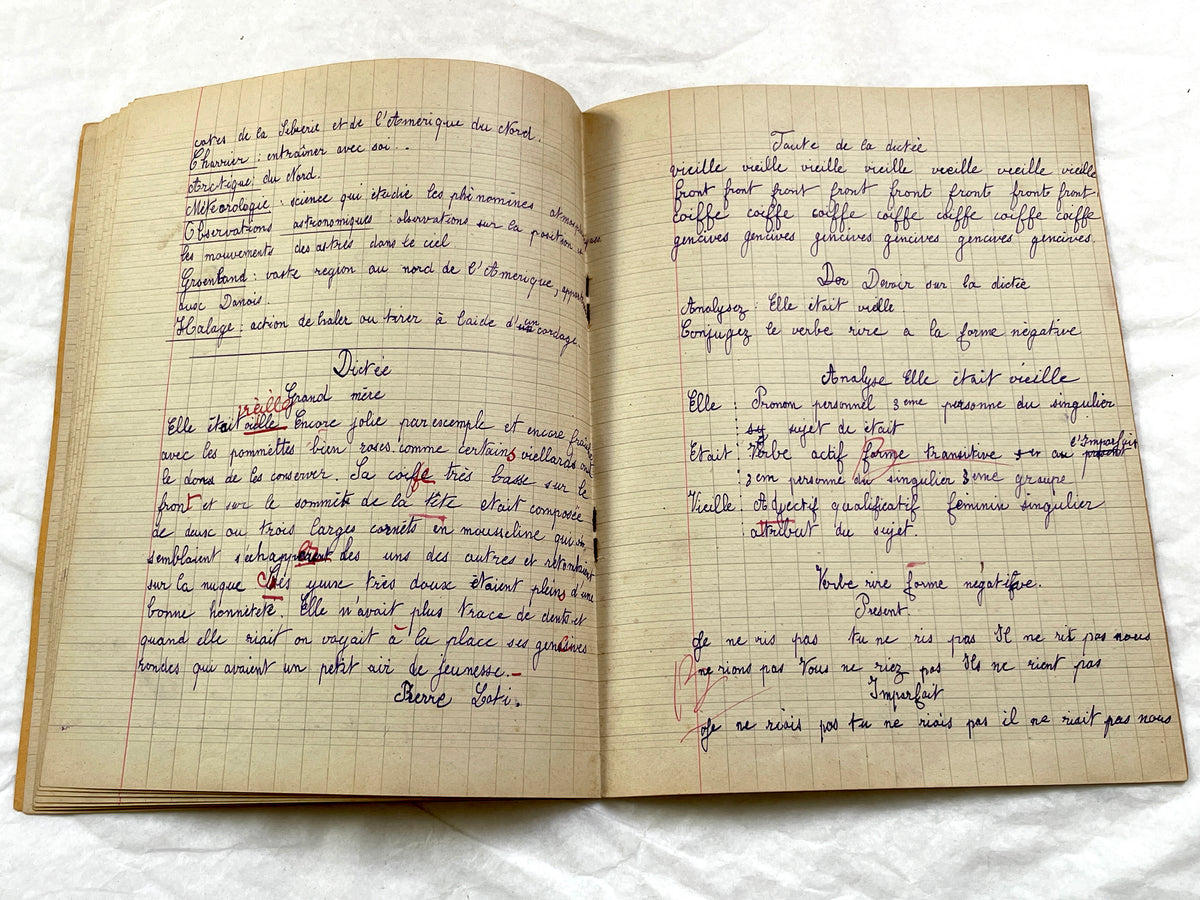 cotes de la Siberie et de l'Amerique du Nord.
Charrier : entraîner avec soi..
Arctique : du Nord.
Météorologie : science qui étudie les phénomines
Observations astronomiques : observations sur la position
les mouvements des astres dans le ciel
Groenland : vaste region au nord de l'Amerique,
aux Danois.
Halage : action de haler ou tirer à l'aide d'un cordage.
Dictée
vieille
Grand mère
Elle était vielle Encore jolie par exemple et encore
avec les pommettes bien roses comme certains viellards ont
le dons de les conserver. Sa coiffe très basse sur le
front et sur le sommets de la tête etait composée
de deux ou trois larges cornéts en mousseline qui
semblaient s'échapper les uns des autres et retombaient
sur la nuque Ses yeux très doux étaient pleins d'une
bonne honnêteté. Elle n'avait plus trace de dents et
quand elle riait on voyait à la place ses gencives
rondes qui avaient un petit air de jeunesse.
Pierre Loti.
Faute de la dictée
vieille vieille vieille vieille vieille vieille vieille
front front front front front front front front
coiffe coiffe coiffe coiffe coiffe coiffe coiffe
gencives gencives gencives gencives gencives gencives.
Der Devoir sur la dictée
Analysez : Elle était vielle
Conjugez le verbe rire a la forme négative
Analyse Elle était vieille
Elle : Pronom personnel 3 eme personne du singulier
sy sujet de était
l'Imparfait
Etait : Verbe actif forme transitive au présent
3 em personne du singulier 3 eme groupe
Vieille : Adjectif qualificatif feminin singulier
attribut du sujet.
Verbe rire forme négative.
Present.
Je ne ris pas tu ne ris pas Il ne rit pas nous
ne rions pas Vous ne riez pas Ils ne rient pas
Imparfait
Je ne riais pas tu ne riais pas il ne riait pas nous